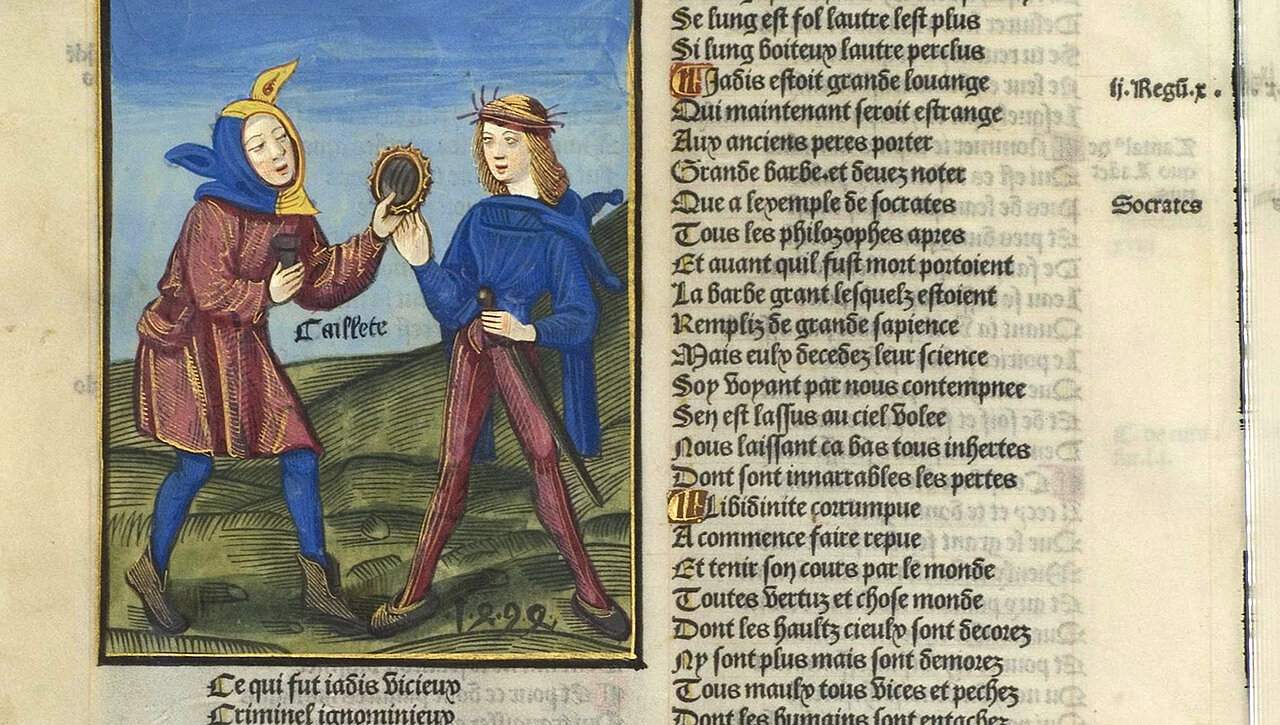 Caillete
1.4.9.9.
Ce qui fut iadis vicieux
Criminel ignominieux
Se lung est fol lautre lest plus
Si lung boiteux lautre perclus
Jadis estoit grande louange
Qui maintenant seroit estrange
Aux anciens peres porter
Grande barbe.et deuez noter
Que a lexemple de socrates
Tous les philozophes apres
Et auant quil fust mort portoient
La barbe grant lesquelz estoient
Rempliz de grande sapience
Mais eulx decedez leur science
Soy voyant par nous contempnee
Sen est lassus au ciel volee
Nous laissant ca bas tous inhertes
Dont sont innarrables les pertes
Libidinite corrumpue
A commence faire repue
Et tenir son cours par le monde
Toutes vertuz et chose monde
Dont les haultz cieulx sont decorez
Ny sont plus mais sont demorez
Tous maulx tous vices et pechez
Dont les humains sont entachez
ij. Regū.x.
Socrates